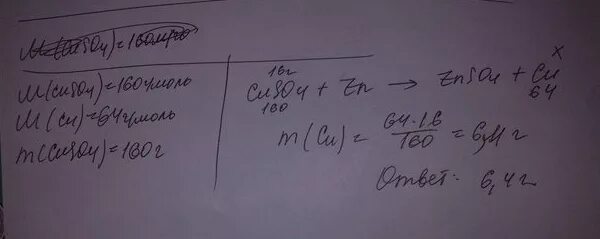 M(CuSO4)=160г/моль
M(Cu)=64г/моль
m(CuSO4)=160г
16г x
CuSO4 + Zn → ZnSO4 + Cu
160 64
m(Cu) = 64·16/160 = 6,4 г
Ответ: 6,4г